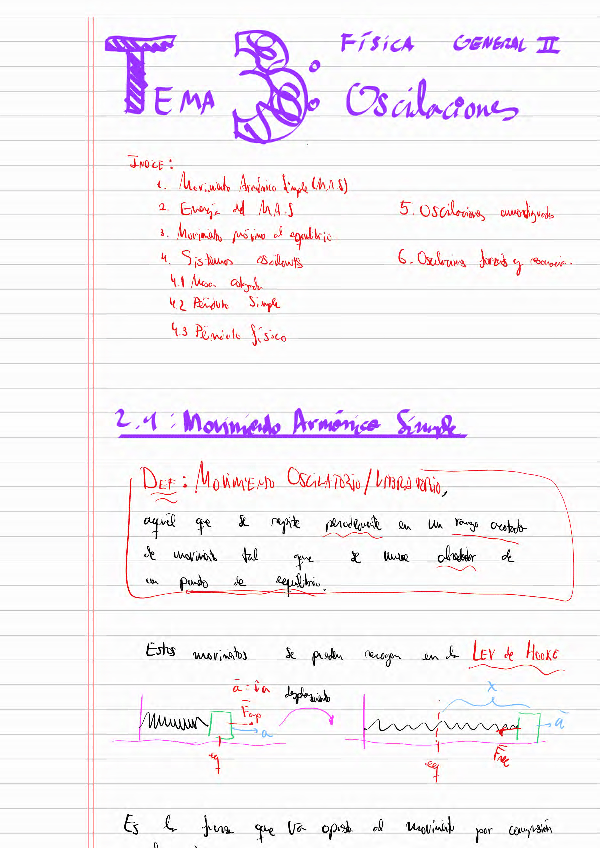 FÍSICA GENERAL II
TEMA 3: Oscilaciones
INDICE:
1. Movimiento Armónico Simple (M.A.S)
2. Energía del M.A.S
3. Movimiento próximo al equilibrio
4. Sistemas oscilants
4.1 Masa colgada
4.2 Péndulo Simple
4.3 Péndulo físico
5. Oscilaciones amortiguadas
6. Oscilaciones forzadas y resonancia.
2.1: Movimiento Armónico Simple
DEF: MOVIMIENTO OSCILATORIO/VIBRATORIO,
aquél que se repite periódicamente en un rango acotado
de movimiento tal que se mueve alrededor de
un punto de equilibrio.
Estos movimientos se pueden recoger en la LEY de HOOKE
desplazamiento
x
a
a
eq
eq
Es la fuerza que va opuesta al movimiento por compresión